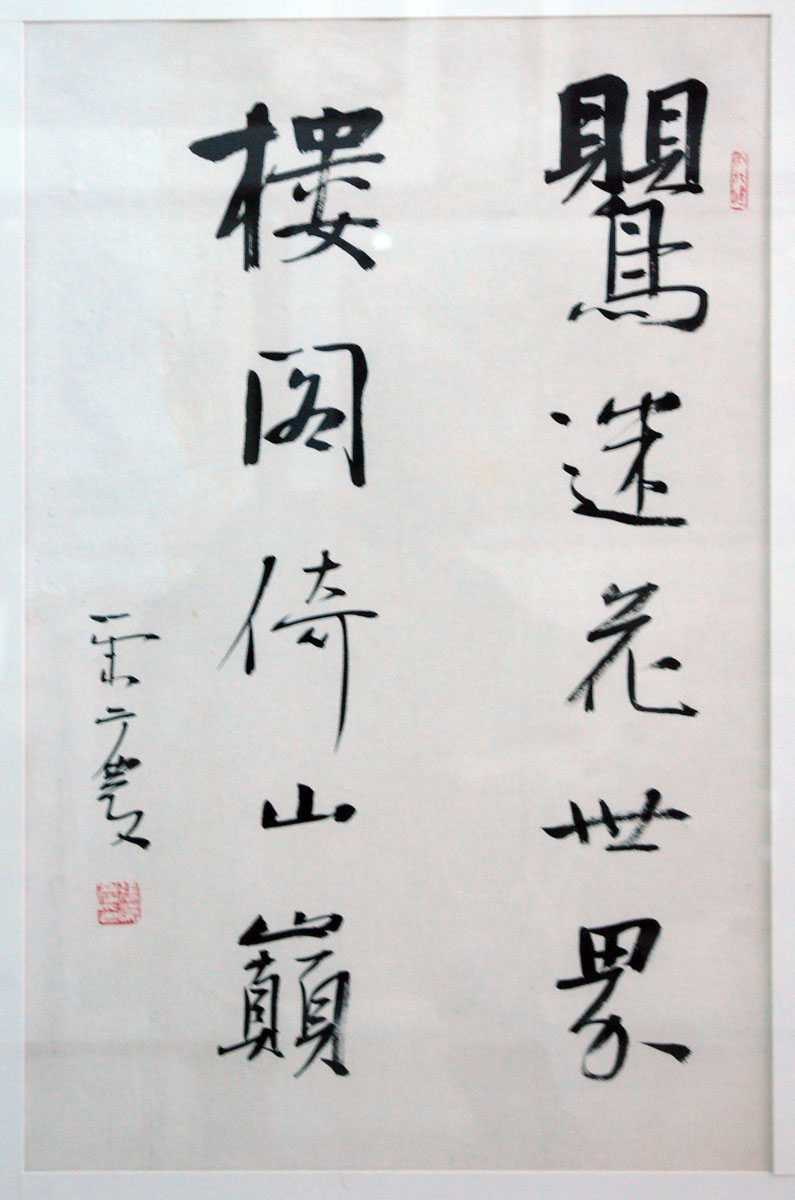 鸎迷花世界
樓阁倚山巔